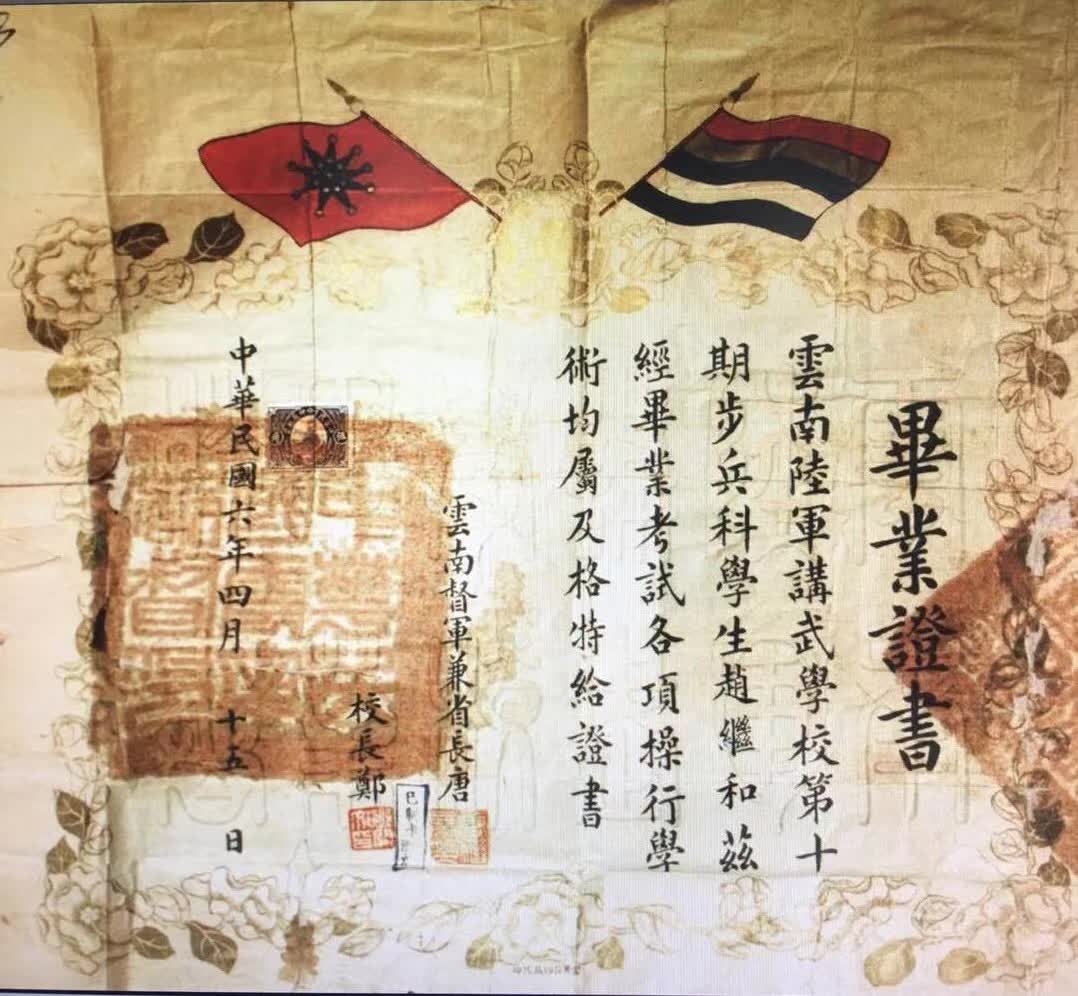 畢業證書
雲南陸軍講武學校第十
期步兵科學生趙繼和茲
經畢業考試各項操行學
術均屬及格特給證書
雲南督軍兼省長唐
校長鄭
中華民國六年四月十五日